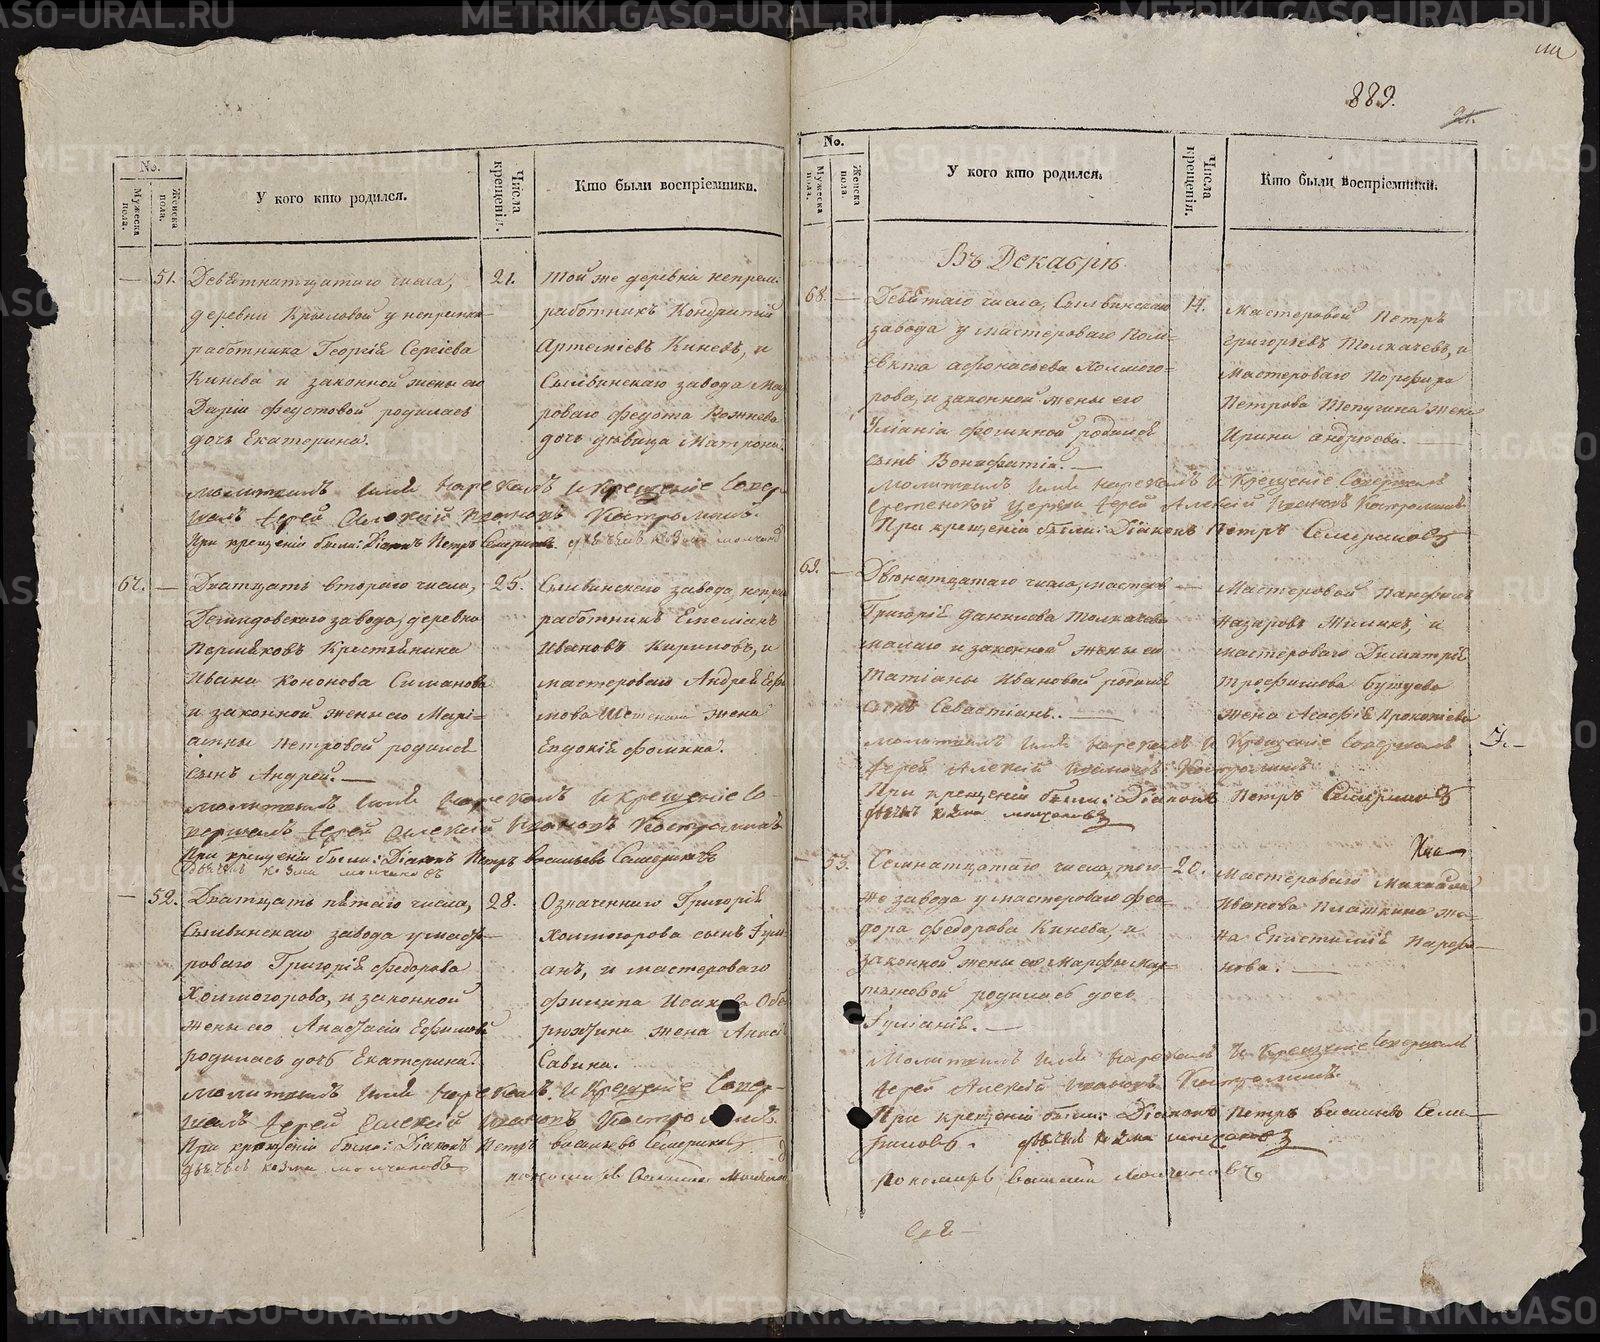 889.
21.
No.
Мужеска пола.
Женска пола.
У кого кто родился.
Числа крещенія.
Кто были воспріемники.
51.
Девятнатцатаго числа,
деревни Крыловой у непремѣ-
работника Георгія Сергіева
Кинева и законной жены его
Даріи Федотовой родилась
дочь Екатерина.
21.
Той же деревни непрем.
работникъ Кондратій
Артеміевъ Киневъ, и
Сылвинскаго завода Ма
роваго Федота
дочь дѣвица Матрона.
молитвилъ имя нарекалъ и крещеніе Совер-
шалъ Іерей Алексій Іоанновъ Костроминъ.
При крещеніи были: Діаконъ Петръ Семериковъ
67.
Дватцать втораго числа,
завода, деревни
Пермяковъ Крестьянина
Ивана Кононова Симанова
и законной жены его Марі-
амны Петровой родился
сынъ Андрей.
25.
Сылвинскаго завода, непрем
работникъ Емеліанъ
Ивановъ Кириловъ, и
мастероваго Андрея Ефи
мова жена
Евдокія Фомина.
молитвилъ имя нарекалъ и крещеніе Со-
вершалъ Іерей Алексій Іоанновъ Костроминъ
При крещеніи были: Діаконъ Петръ Васильевъ Семериковъ
Козма Молчановъ
52.
Дватцать пятаго числа,
Сылвинскаго завода у масте-
роваго Григорія Федорова
Холмогорова, и законной
жены его Анастасіи Ефимовой
родилась дочь Екатерина.
28.
Означеннаго Григорія
Холмогорова сынъ Іулі-
анъ, и мастероваго
Филиппа Исакова Обо
рюжтина жена Анас
Савина.
молитвилъ имя нарекалъ и Крещеніе Совер-
шалъ Іерей Алексій Іоанновъ Костроминъ.
При крещеніи были: Діаконъ Петръ Васильевъ Семериковъ
Козма Молчановъ
No.
Мужеска пола.
Женска пола.
У кого кто родился.
Числа крещенія.
Кто были воспріемники.
Въ Декабрѣ
68.
Девятаго числа, Сылвинскаго
завода у мастероваго Поли-
евкта Афонасьева Холмого-
рова, и законной жены его
Уліаніи Фоминой родился
сынъ Вонифатій.
14.
Мастеровой Петръ
Григорьевъ Толкачевъ, и
Мастероваго Порфира
Петрова Тепугина жена
Ирина Андреева.
молитвилъ имя нарекалъ и крещеніе Совершалъ
Сретенской церкви Іерей Алексій Іоанновъ Костроминъ
При крещеніи были: Діаконъ Петръ Семериковъ
69.
Двѣнатцатаго числа, мастеръ
Григорія Данилова Толкачева
малаго и законной жены его
Татіаны Ивановой родился
сынъ Севастіанъ.
Мастеровой Панфилъ
Назаровъ Жилинъ, и
мастероваго Димитрія
Трофимова Бутуева
жена Агафія Прокопіева
молитвилъ имя нарекалъ и Крещеніе Совершалъ
Іерей Алексій Іоанновъ Костроминъ
При крещеніи были: Діаконъ Петръ Семериковъ
Козма Молчановъ
53.
Семнатцатаго числа, того
же завода у мастероваго Фео-
дора Федорова Кинева, и
законной жены его Марфы Мар-
тыновой родилась дочь
Іуліанія.
20.
Мастероваго Михайла
Иванова Платкина же-
на Епистимія Парфе-
нова.
Молитвилъ имя нарекалъ и крещеніе Совершалъ
Іерей Алексій Іоанновъ Костроминъ.
При крещеніи были: Діаконъ Петръ Васильевъ Семе-
риковъ. Козма Молчановъ
пономарь Василій Молчановъ
METRIKI.GASO-URAL.RU